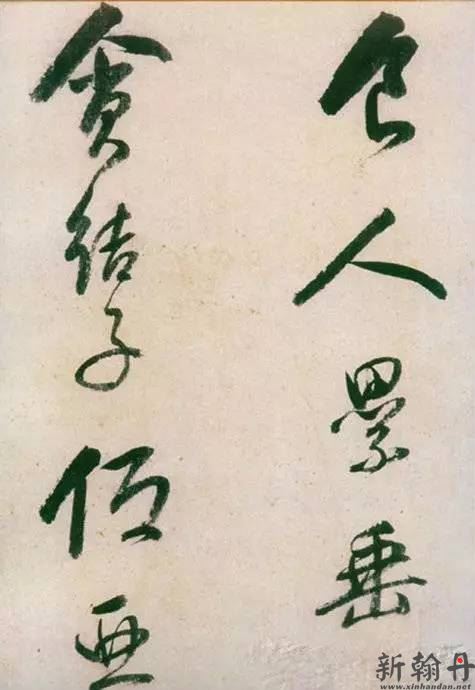 食人累垂
貪結子低亞
新翰丹
www.xinhandan.net